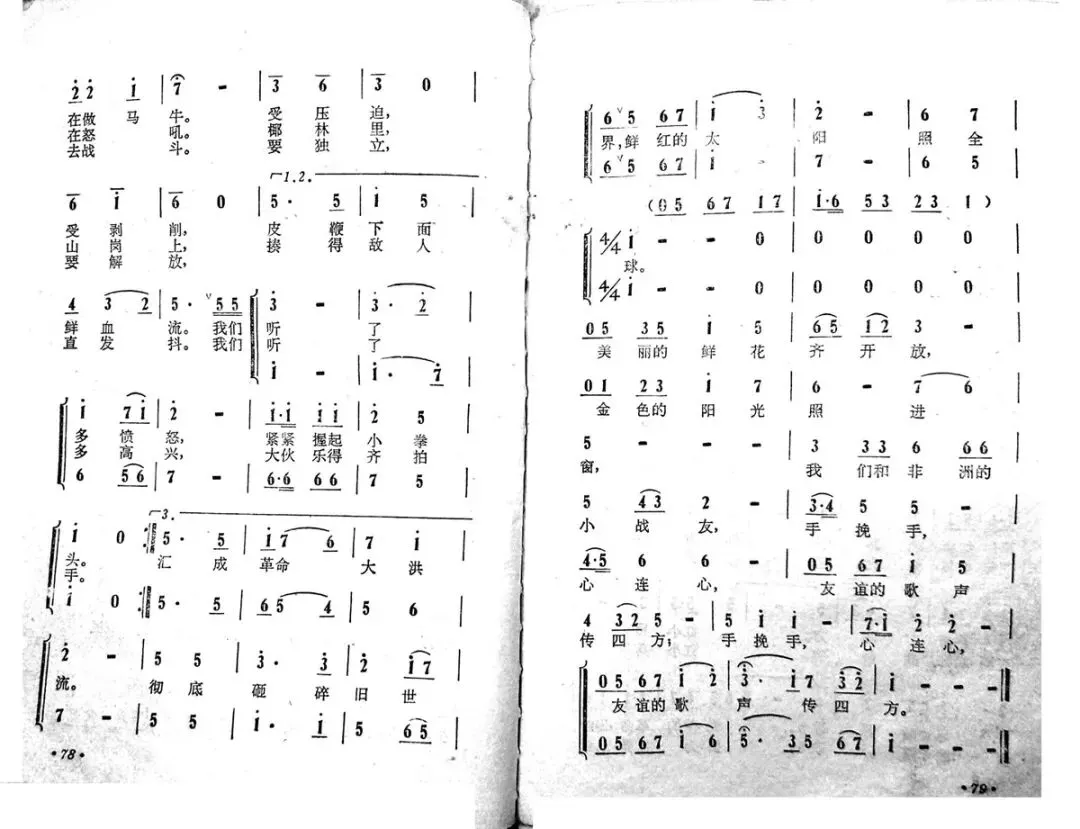 2̇2̇ 1̇ | 7̂ - | 3̄ 6̄ | 3̄ 0 |
在做 马 牛。 受 压 迫,
在怒 吼。 椰 林 里,
去战 斗。 要 独 立,
┌1.2.
6̄ 1̇ | 6̄ 0 | 5· 5 | 1̇ 5 |
受 剥 削, 皮 鞭 下 面
山 岗 上, 揍 得 敌 人
要 解 放,
4 3 2 | 5· ∨5 5 | 3̇ - | 3̇· 2̇ |
鲜 血 流。 我们 听 了
直 发 抖。 我们 听 了
1̇ - | 1̇· 7 |
1̇ 7 1̇ | 2̇ - | 1̇·1̇ 1̇1̇ | 2̇ 5 |
多 愤 怒, 紧紧 握起 小 拳
多 高 兴, 大伙 乐得 齐 拍
6 5 6 | 7 - | 6·6 6 6 | 7 5 |
┌3.
1̇ 0 :‖ 5· 5 | 1̇ 7 6 | 7 1̇ |
头。 汇 成 革命 大 洪
手。
1̇ 0 :‖ 5· 5 | 6 5 4 | 5 6 |
2̇ - | 5 5 | 3̇· 3̇ | 2̇ 1̇ 7 |
流。 彻 底 砸 碎 旧 世
7 - | 5 5 | 1̇· 1̇ | 5 6 5 |
·78·
6 ∨5 6 7 | 1̇ 3̇ | 2̇ - | 6 7 |
界,鲜 红的 太 阳 照 全
6 ∨5 6 7 | 1̇ - | 7 - | 6 5 |
(0 5 6 7 1̇ 7 | 1̇·6 5 3 2 3 1)
4/4 1̇ - - 0 | 0 0 0 0 |
球。
4/4 1̇ - - 0 | 0 0 0 0 |
0 5 3 5 1̇ 5 | 6 5 1̇ 2̇ 3 - |
美 丽的 鲜 花 齐 开 放,
0 1 2 3 1̇ 7 | 6 - 7 6 |
金 色的 阳 光 照 进
5 - - - | 3 3 3 6 6 6 |
窗, 我 们和 非 洲的
5 4 3 2 - | 3·4 5 5 - |
小 战 友, 手 挽 手,
4·5 6 6 - | 0 5 6 7 1̇ 5 |
心 连 心, 友 谊的 歌 声
4 3 2 5 - | 5 1̇ 1̇ - | 7·1̇ 2̇ 2̇ - |
传 四 方, 手 挽 手, 心 连 心,
0 5 6 7 1̇ 2̇ | 3̇· 1̇ 7 3̇ 2̇ | 1̇ - - - ‖
友 谊的 歌 声 传 四 方。
0 5 6 7 1̇ 6 | 5· 3 5 6 7 | 1̇ - - - ‖
·79·